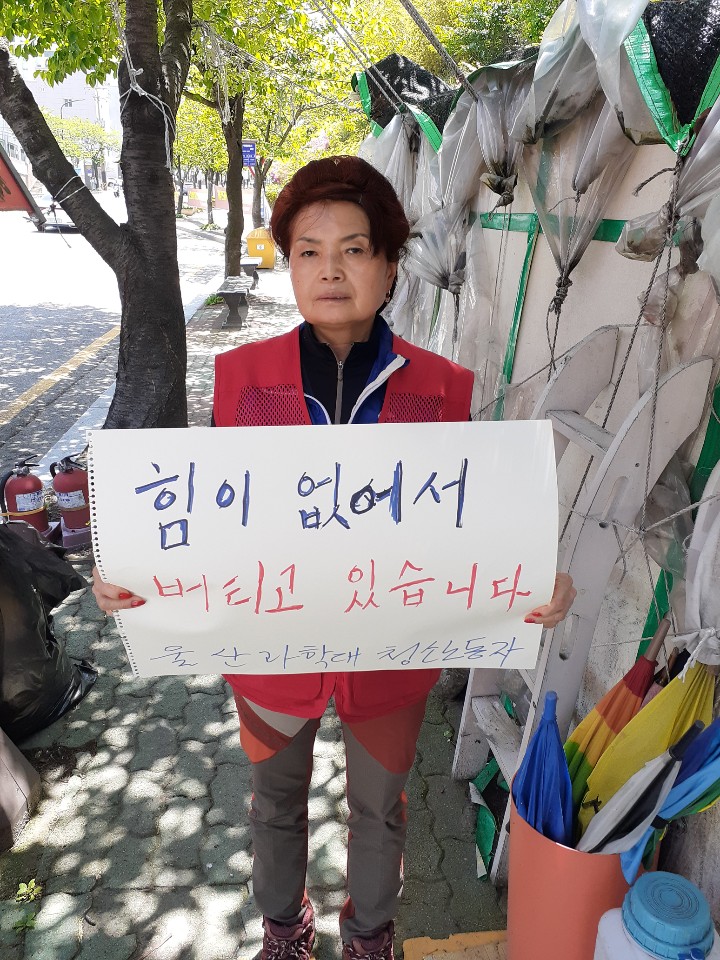 힘이 없어서
버티고 있습니다
울산과학대 청소노동자